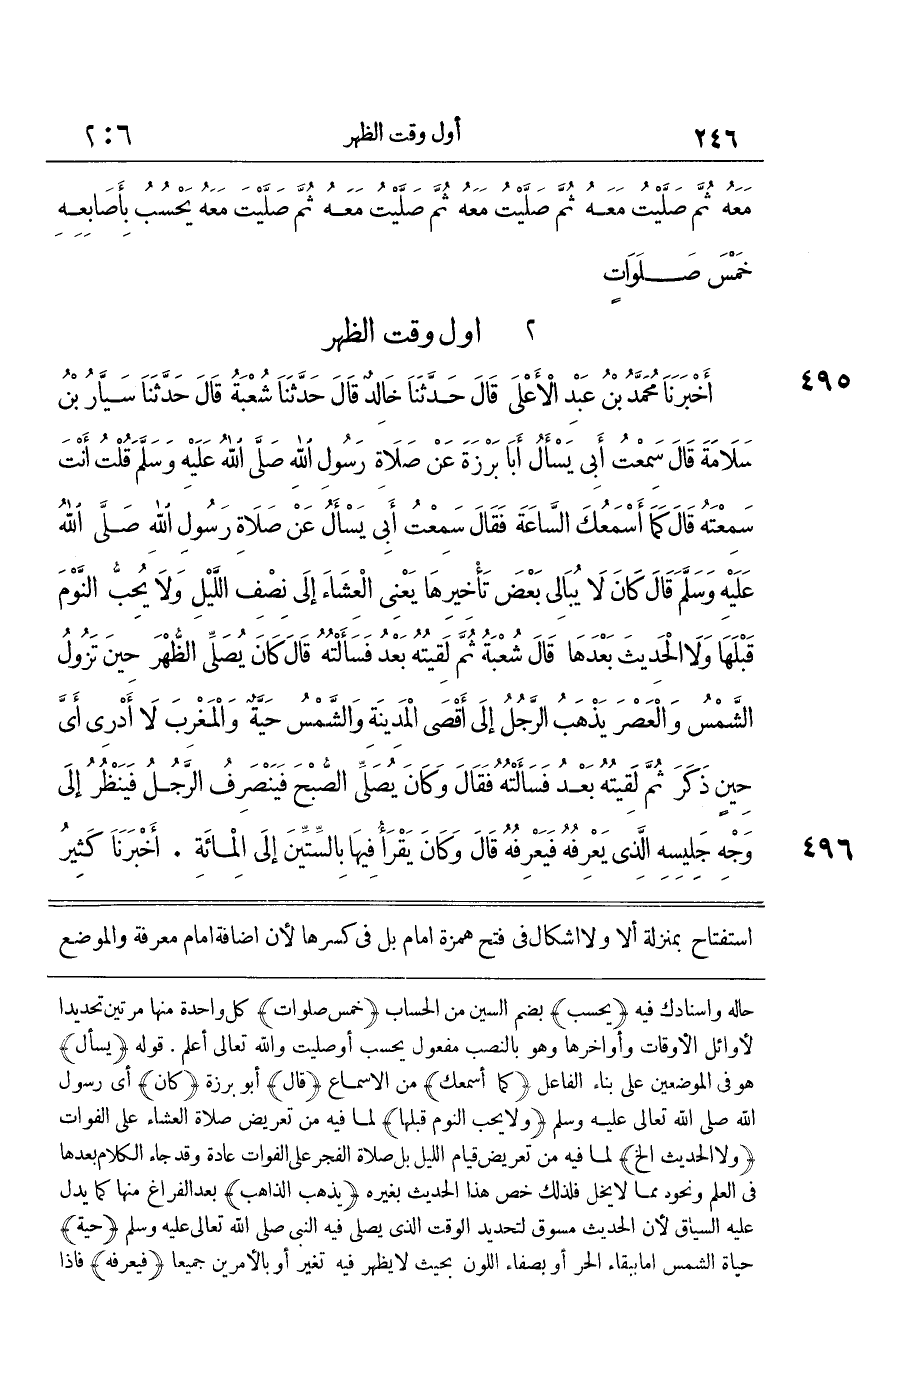 ٢٤٦ أول وقت الظهر ٦ : ٢
مَعَهُ ثُمَّ صَلَّيْتُ مَعَهُ ثُمَّ صَلَّيْتُ مَعَهُ ثُمَّ صَلَّيْتُ مَعَهُ ثُمَّ صَلَّيْتُ مَعَهُ يَحْسُبُ بِأَصَابِعِهِ
خَمْسَ صَلَوَاتٍ
٢ اول وقت الظهر
٤٩٥ أَخْبَرَنَا مُحَمَّدُ بْنُ عَبْدِ الْأَعْلَى قَالَ حَدَّثَنَا خَالِدٌ قَالَ حَدَّثَنَا شُعْبَةُ قَالَ حَدَّثَنَا سَيَّارُ بْنُ
سَلَامَةَ قَالَ سَمِعْتُ أَبِى يَسْأَلُ أَبَا بَرْزَةَ عَنْ صَلَاةِ رَسُولِ اللهِ صَلَّى اللهُ عَلَيْهِ وَسَلَّمَ قُلْتُ أَنْتَ
سَمِعْتَهُ قَالَ كَمَا أَسْمَعُكَ السَّاعَةَ فَقَالَ سَمِعْتُ أَبِى يَسْأَلُ عَنْ صَلَاةِ رَسُولِ اللهِ صَلَّى اللهُ
عَلَيْهِ وَسَلَّمَ قَالَ كَانَ لَا يُبَالِى بَعْضَ تَأْخِيرِهَا يَعْنِى الْعِشَاءَ إِلَى نِصْفِ اللَّيْلِ وَلَا يُحِبُّ النَّوْمَ
قَبْلَهَا وَلَا الْحَدِيثَ بَعْدَهَا قَالَ شُعْبَةُ ثُمَّ لَقِيتُهُ بَعْدُ فَسَأَلْتُهُ قَالَ كَانَ يُصَلِّى الظُّهْرَ حِينَ تَزُولُ
الشَّمْسُ وَالْعَصْرَ يَذْهَبُ الرَّجُلُ إِلَى أَقْصَى الْمَدِينَةِ وَالشَّمْسُ حَيَّةٌ وَالْمَغْرِبَ لَا أَدْرِى أَىَّ
حِينٍ ذَكَرَ ثُمَّ لَقِيتُهُ بَعْدُ فَسَأَلْتُهُ فَقَالَ وَكَانَ يُصَلِّى الصُّبْحَ فَيَنْصَرِفُ الرَّجُلُ فَيَنْظُرُ إِلَى
٤٩٦ وَجْهِ جَلِيسِهِ الَّذِى يَعْرِفُهُ فَيَعْرِفُهُ قَالَ وَكَانَ يَقْرَأُ فِيهَا بِالسِّتِّينَ إِلَى الْمِائَةِ . أَخْبَرَنَا كَثِيرُ
استفتاح بمنزلة ألا ولا اشكال فى فتح همزة امام بل فى كسرها لأن اضافة امام معرفة والموضع
حاله واسنادك فيه ﴿يحسب﴾ بضم السين من الحساب ﴿خمس صلوات﴾ كل واحدة منها مرتين تحديدا
لأوائل الأوقات وأواخرها وهو بالنصب مفعول يحسب أو صليت والله تعالى أعلم . قوله ﴿يسأل﴾
هو فى الموضعين على بناء الفاعل ﴿كما أسمعك﴾ من الاسماع ﴿قال﴾ أبو برزة ﴿كان﴾ أى رسول
الله صلى الله تعالى عليه وسلم ﴿ولا يحب النوم قبلها﴾ لما فيه من تعريض صلاة العشاء على الفوات
﴿ولا الحديث الخ﴾ لما فيه من تعريض قيام الليل بل صلاة الفجر على الفوات عادة وقد جاء الكلام بعدها
فى العلم ونحوه مما لا يخل فلذلك خص هذا الحديث بغيره ﴿يذهب الذاهب﴾ بعد الفراغ منها كما يدل
عليه السياق لأن الحديث مسوق لتحديد الوقت الذى يصلى فيه النبى صلى الله تعالى عليه وسلم ﴿حية﴾
حياة الشمس اما ببقاء الحر أو بصفاء اللون بحيث لا يظهر فيه تغير أو بالأمرين جميعا ﴿فيعرفه﴾ فاذا